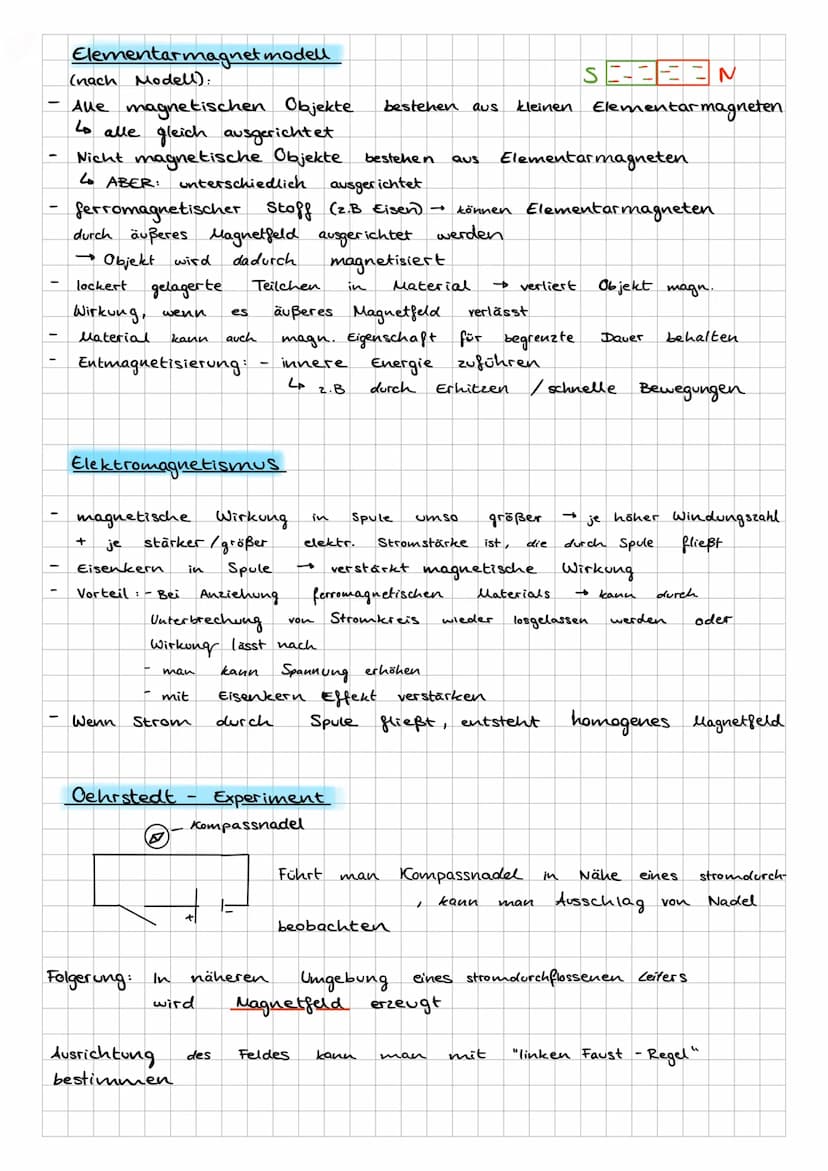 Elementarmagnetmodell
(nach Modell):
S N
- Alle magnetischen Objekte bestehen aus kleinen Elementarmagneten
↳ alle gleich ausgerichtet
- Nicht magnetische Objekte bestehen aus Elementarmagneten
↳ ABER: unterschiedlich ausgerichtet
- ferromagnetischer Stoff (z.B Eisen) → können Elementarmagneten
durch äußeres Magnetfeld ausgerichtet werden
→ Objekt wird dadurch magnetisiert
- lockert gelagerte Teilchen in Material → verliert Objekt magn.
Wirkung, wenn es äußeres Magnetfeld verlässt
- Material kann auch magn. Eigenschaft für begrenzte Dauer behalten
- Entmagnetisierung: - innere Energie zuführen
↳ z.B durch Erhitzen / schnelle Bewegungen
Elektromagnetismus
- magnetische Wirkung in Spule umso größer → je höher Windungszahl
+ je stärker/größer elektr. Stromstärke ist, die durch Spule fließt
- Eisenkern in Spule → verstärkt magnetische Wirkung
- Vorteil: - Bei Anziehung ferromagnetischen Materials → kann durch
Unterbrechung von Stromkreis wieder losgelassen werden oder
Wirkung lässt nach
- man kann Spannung erhöhen
- mit Eisenkern Effekt verstärken
- Wenn Strom durch Spule fließt, entsteht homogenes Magnetfeld
Oehrstedt - Experiment
Kompassnadel
Führt man Kompassnadel in Nähe eines stromdurch-
, kann man Ausschlag von Nadel
+ -
beobachten
Folgerung: In näheren Umgebung eines stromdurchflossenen Leiters
wird Magnetfeld erzeugt
Ausrichtung des Feldes kann man mit "linken Faust - Regel"
bestimmen